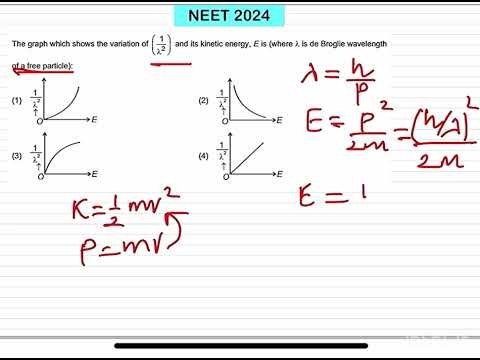 NEET 2024
The graph which shows the variation of (1/λ²) and its kinetic energy, E is (where λ is de Broglie wavelength
of a free particle):
(1) 1/λ² ↑ O → E
(2) 1/λ² ↑ O → E
(3) 1/λ² ↑ O → E
(4) 1/λ² ↑ O → E
λ = h/P
E = P²/2m = (h/λ)²/2m
K = 1/2 mv²
P = mv
E = 1